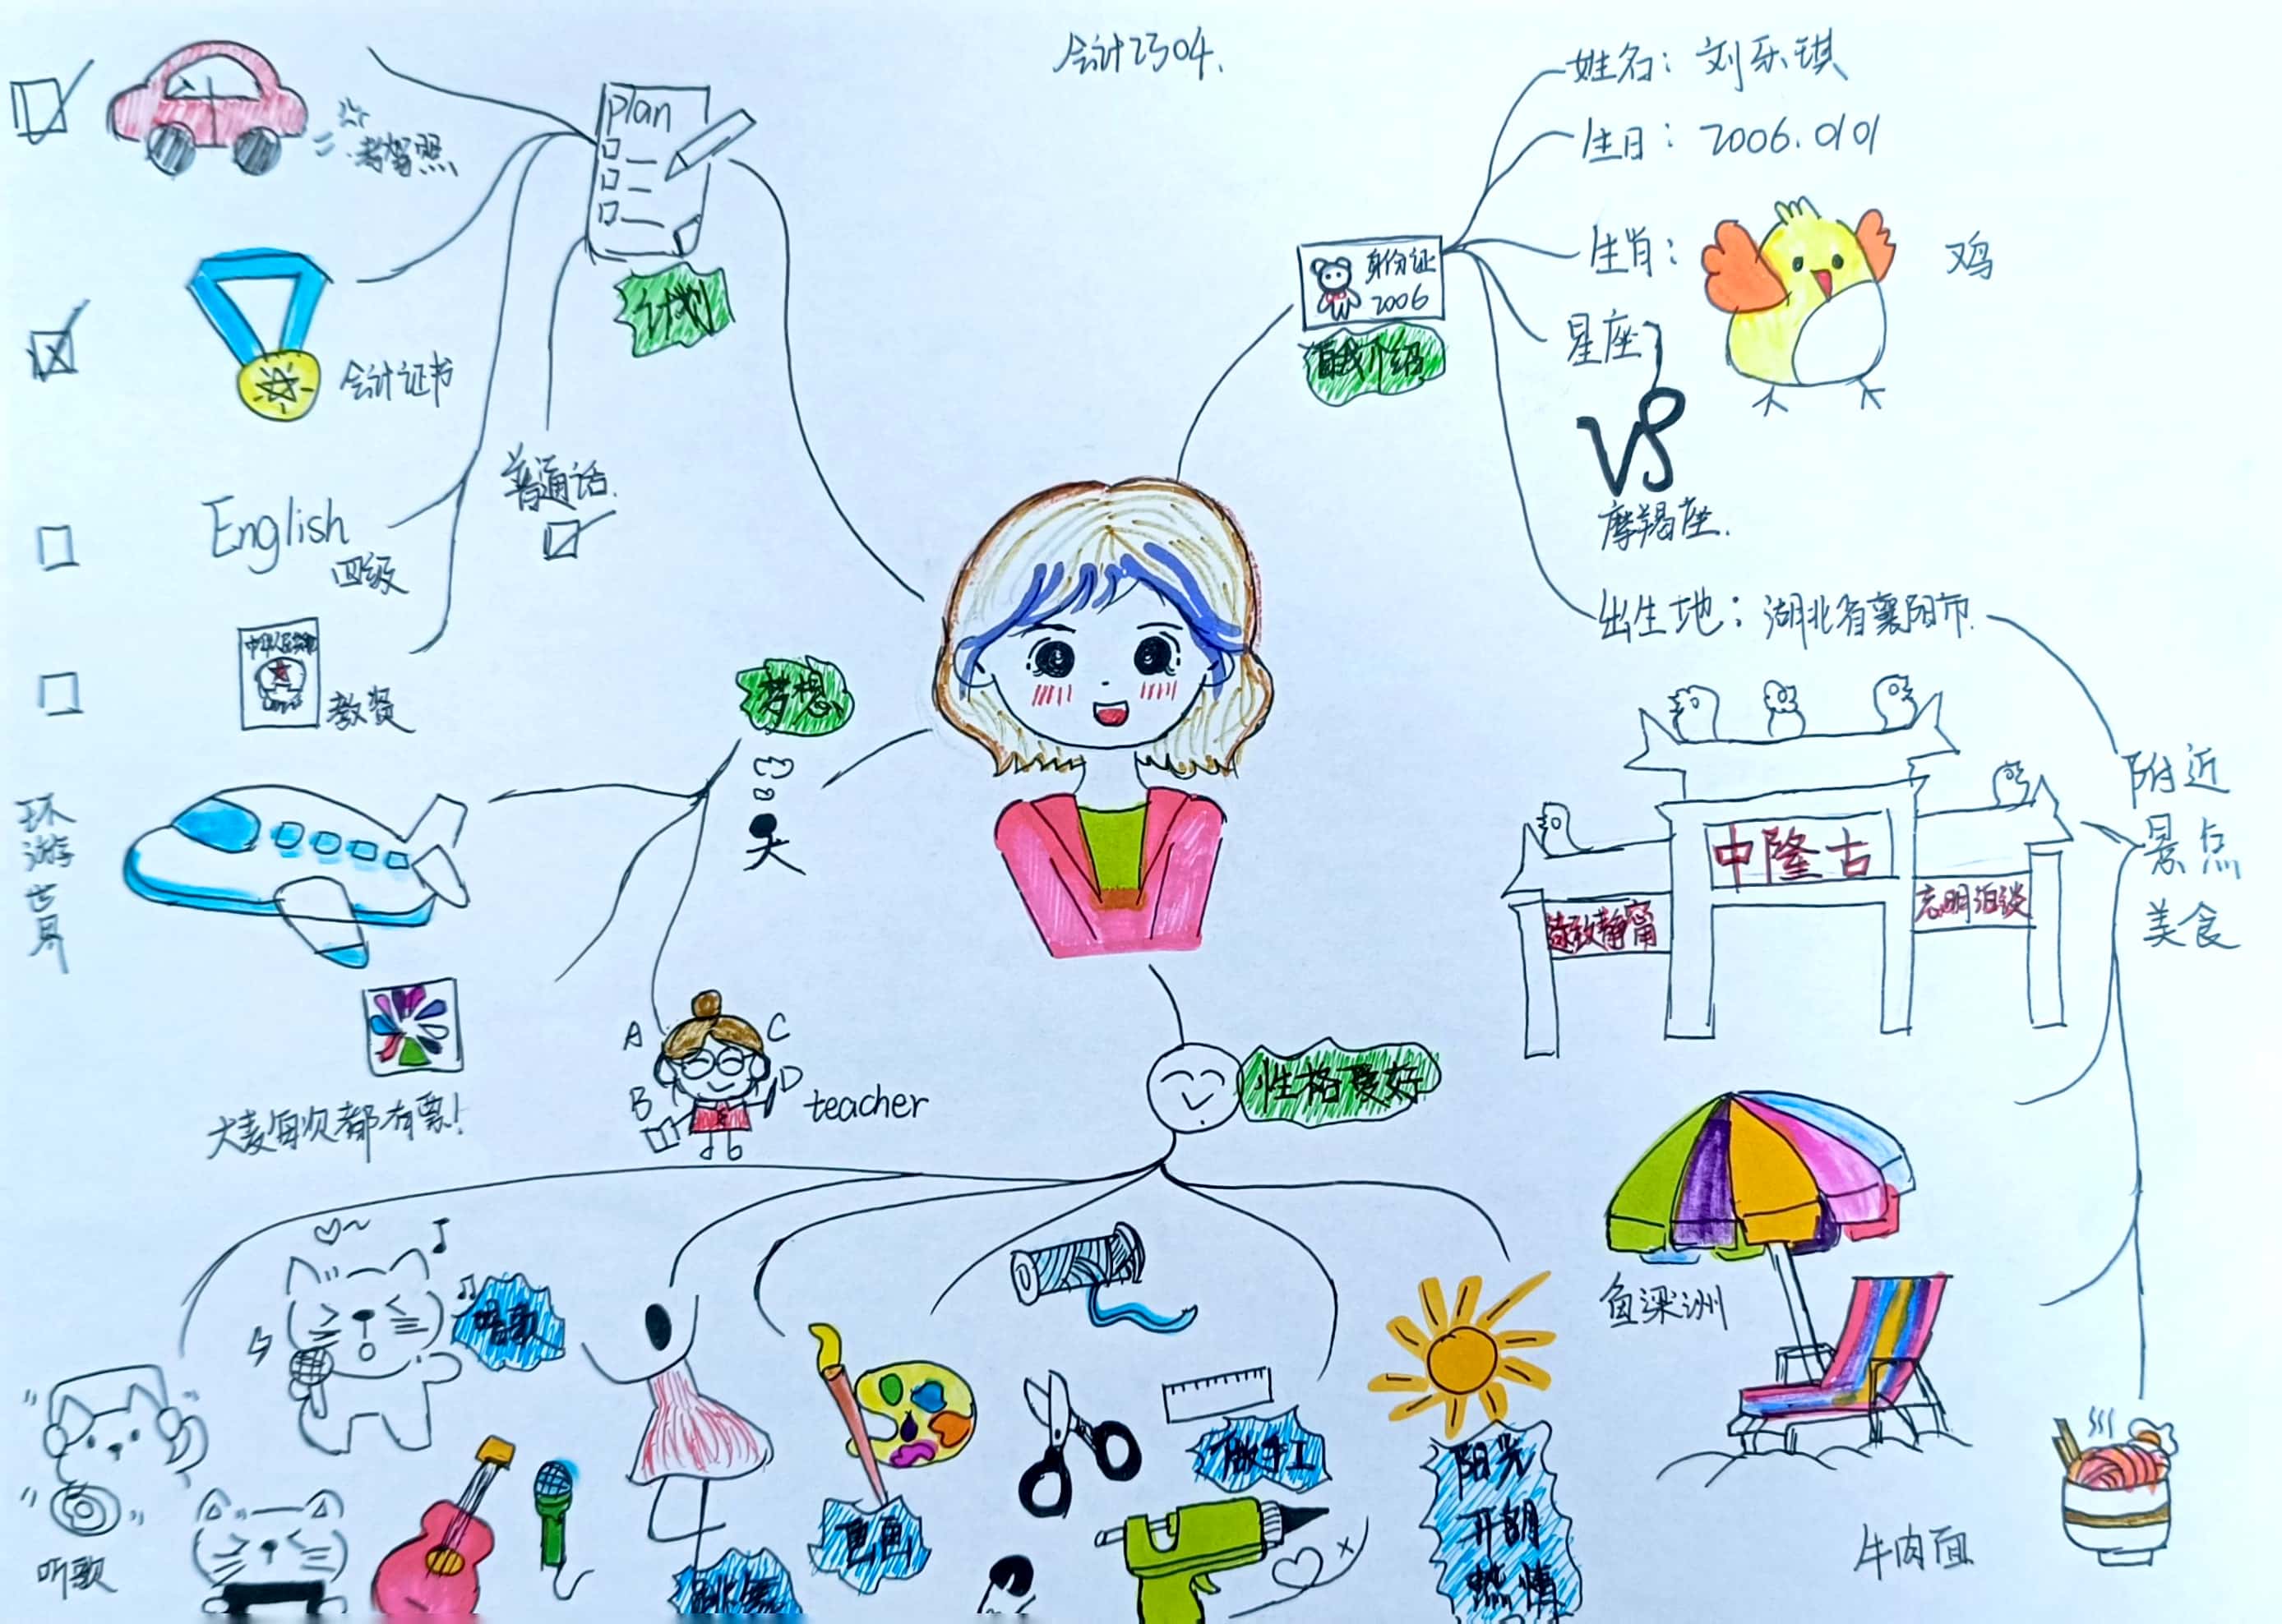 会计2304.
姓名：刘乐琪
生日：2006.0101
生肖：
鸡
星座
摩羯座.
出生地：湖北省襄阳市.
身份证
2006
自我介绍
附近
景点
美食
中隆古
鱼梁洲
牛肉面
plan
计划
考驾照
会计证书
English
四级
普通话.
教资
梦想
环游世界
大麦每次都有票！
A
C
B
D
teacher
性格爱好
唱歌
听歌
跳舞
画画
做手工
阳光
开朗
热情